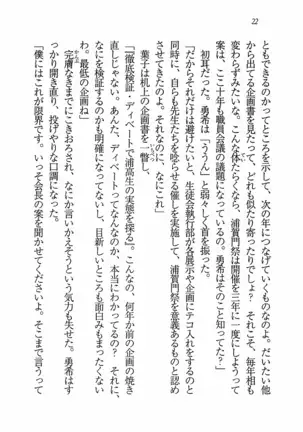 22
ともできるのかってところを示して、次の年につなげていくものなのよ。だいたい他
から出てる企画書を見たって、どれも似たり寄ったりでしょ？　これこそ、毎年相も
変わらずみたいな。こんな体たらくなら、浦賀門祭は開催を三年に一度にしようって
案は、ここ十年も職員会議の議題になっているの。勇希はそのこと知ってた？」
初耳だった。勇希は「ううん」と弱々しく首を振った。
「だからそれだけは避けたいと、生徒会執行部が各展示や企画にテコ入れをするのと
同時に、自らも先生たちを唸らせる催しを実施して、浦賀門祭を意義あるものと認め
させてきたのよ。それなのに、なにこれ」
葉子は机上の企画書を一瞥し、
「『徹底検証・ディベートで浦高生の実態を探る』。こんなの、何年か前の企画の焼き
直しじゃない。あんた、ディベートってなんなのか、本当にわかってるの？　それに、
なにを検証するのかも明確になってないし、目新しいところも面白みもまったくない
わ。最低の企画ね」
完膚なきまでにこきおろされ、なにか言いかえそうという気力も失せた。勇希はす
っかり開き直り、投げやりな口調になった。
「僕にはこれが限界です。いっそ会長の案を聞かせてくださいよ。そこまで言うって